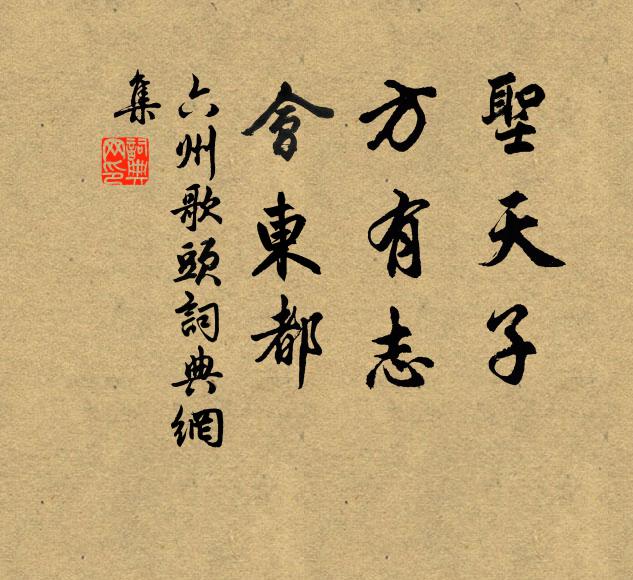 聖天子
方有志
會東都
六州歌頭詞典網
集
詞典網印